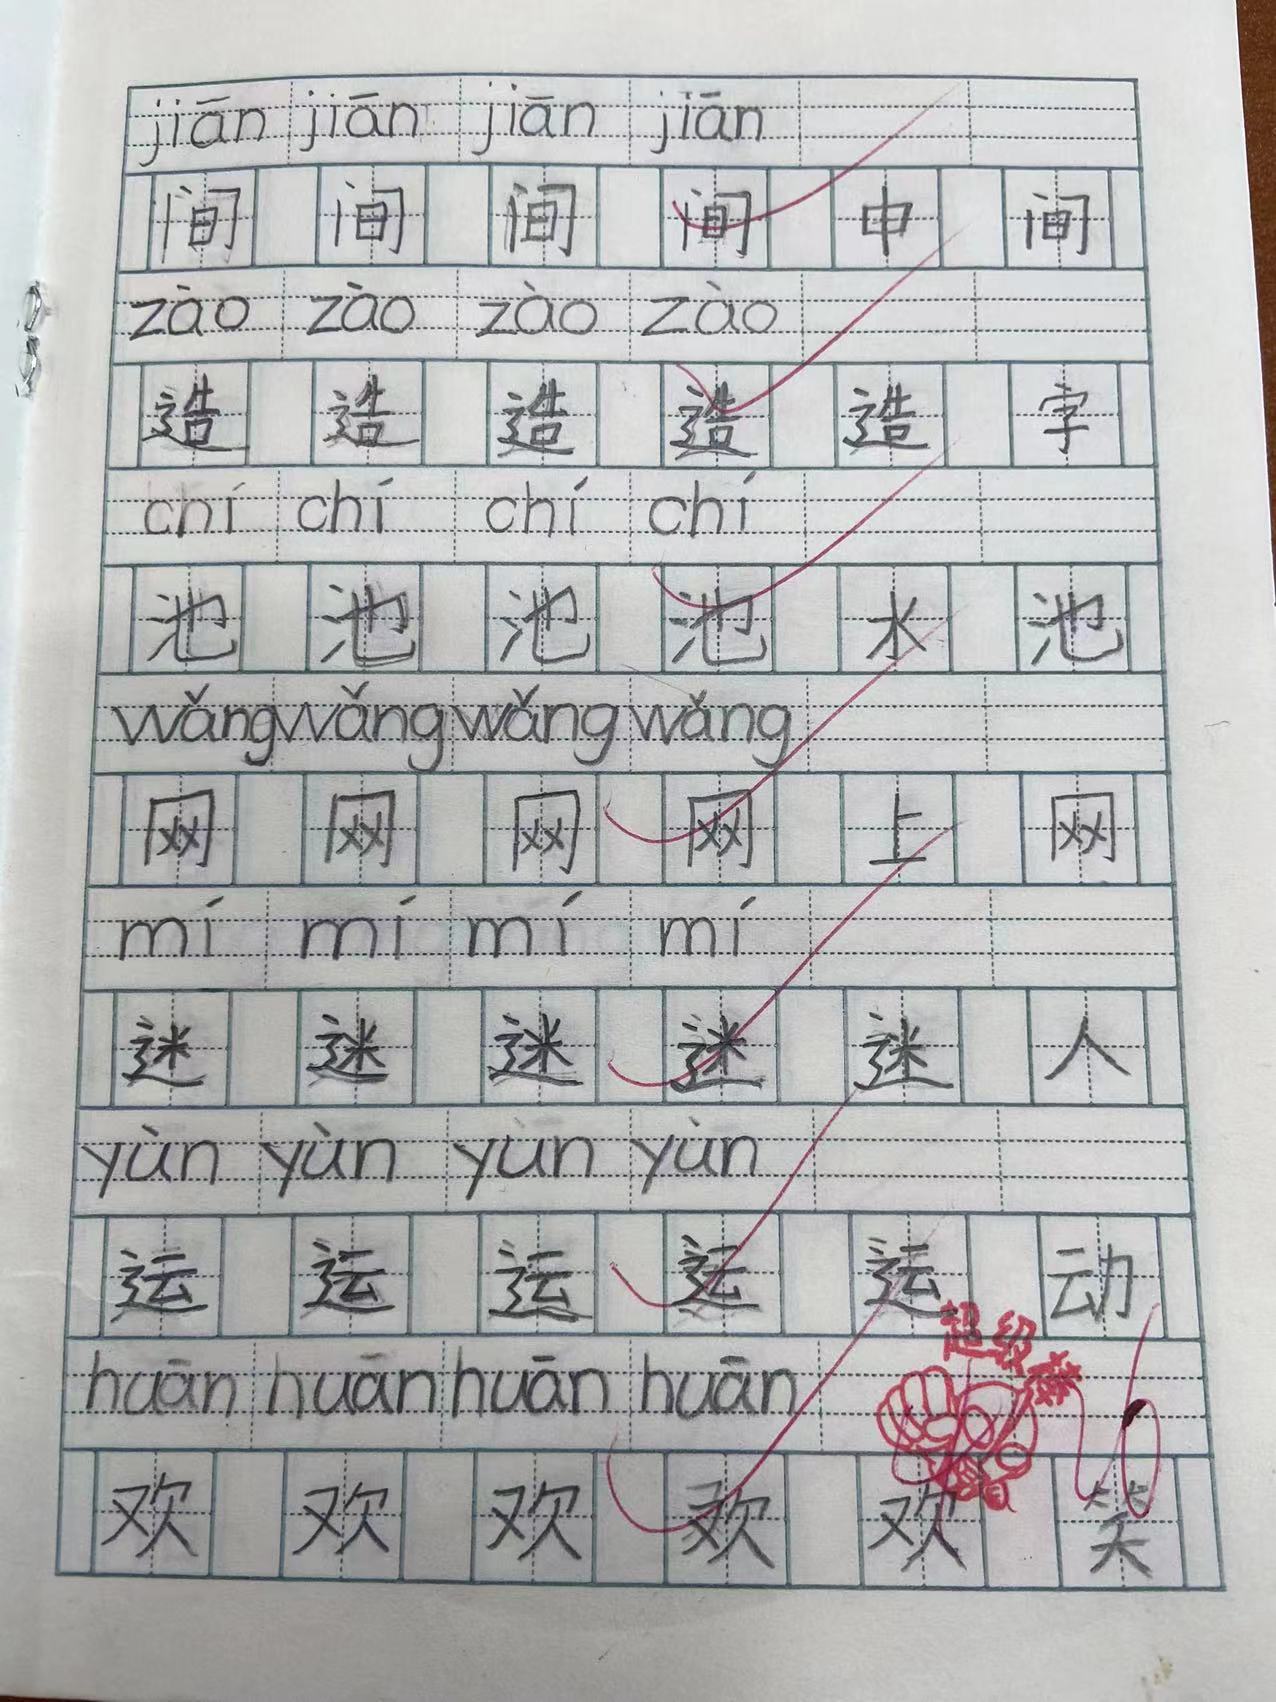 jiān jiān jiān jiān
间 间 间 间 中 间
zào zào zào zào
造 造 造 造 造 字
chí chí chí chí
池 池 池 池 水 池
wǎng wǎng wǎng wǎng
网 网 网 网 上 网
mí mí mí mí
迷 迷 迷 迷 迷 人
yùn yùn yùn yùn
运 运 运 运 运 动
超级棒
huān huān huān huān
欢 欢 欢 欢 欢 笑